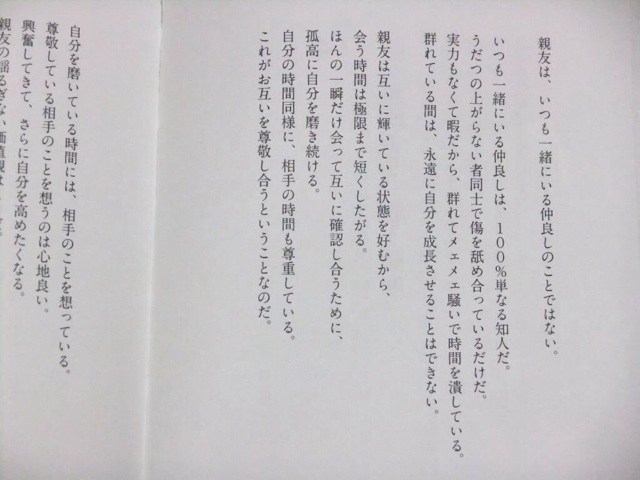 親友は、いつも一緒にいる仲良しのことではない。
いつも一緒にいる仲良しは、100%単なる知人だ。
うだつの上がらない者同士で傷を舐め合っているだけだ。
実力もなくて暇だから、群れてメェメェ騒いで時間を潰している。
群れている間は、永遠に自分を成長させることはできない。
親友は互いに輝いている状態を好むから、
会う時間は極限まで短くしたがる。
ほんの一瞬だけ会って互いに確認し合うために、
孤高に自分を磨き続ける。
自分の時間同様に、相手の時間も尊重している。
これがお互いを尊敬し合うということなのだ。
自分を磨いている時間には、相手のことを想っている。
尊敬している相手のことを想うのは心地良い。
興奮してきて、さらに自分を高めたくなる。
親友の揺るぎない価値観は